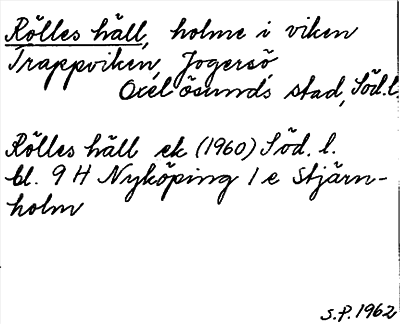 Rölles häll, holme i viken
Trappviken, Jogersö,
Oxelösunds stad, Söd.l.
Rölles häll ek (1960) Söd. l.
bl. 9 H Nyköping 1 e Stjärn-
holm
S.P. 1962